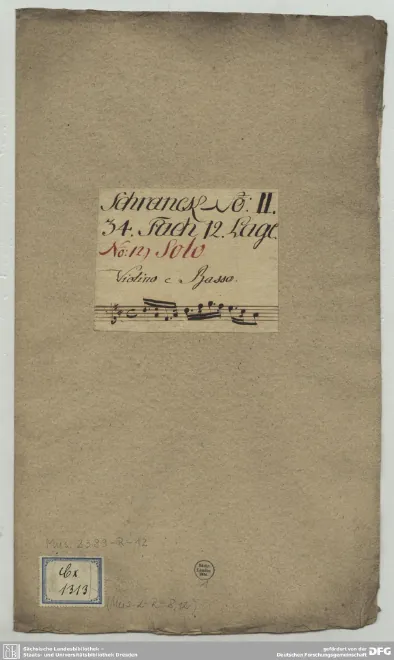 Schranck No: II.
34. Fach 12. Lage
No: 12) Solo
Violino e Basso.
Mus. 2389-R-12
Cx
1313
Sächsische Landesbibliothek –
Staats- und Universitätsbibliothek Dresden
gefördert von der
Deutschen Forschungsgemeinschaft
DFG